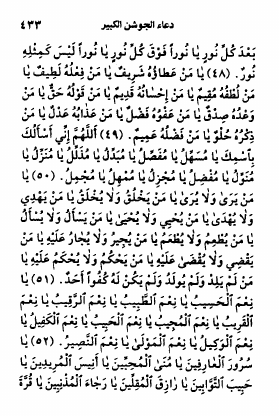 دعاء الجوشن الكبير ٤٣٣
بَعْدَ كُلِّ نُورٍ يَا نُوراً فَوْقَ كُلِّ نُورٍ يَا نُوراً لَيْسَ كَمِثْلِهِ
نُورٌ. (٤٨) يَا مَنْ عَطَاؤُهُ شَرِيفٌ يَا مَنْ فِعْلُهُ لَطِيفٌ يَا
مَنْ لُطْفُهُ مُقِيمٌ يَا مَنْ إِحْسَانُهُ قَدِيمٌ يَا مَنْ قَوْلُهُ حَقٌّ يَا مَنْ
وَعْدُهُ صِدْقٌ يَا مَنْ عَفْوُهُ فَضْلٌ يَا مَنْ عَذَابُهُ عَدْلٌ يَا مَنْ
ذِكْرُهُ حُلْوٌ يَا مَنْ فَضْلُهُ عَمِيمٌ. (٤٩) اَللَّهُمَّ إِنِّي أَسْأَلُكَ
بِاسْمِكَ يَا مُسَهِّلُ يَا مُفَصِّلُ يَا مُبَدِّلُ يَا مُذَلِّلُ يَا مُنَزِّلُ يَا
مُنَوِّلُ يَا مُفْضِلُ يَا مُجْزِلُ يَا مُمْهِلُ يَا مُجْمِلُ. (٥٠) يَا
مَنْ يَرىٰ وَلَا يُرىٰ يَا مَنْ يَخْلُقُ وَلَا يُخْلَقُ يَا مَنْ يَهْدِي
وَلَا يُهْدىٰ يَا مَنْ يُحْيِي وَلَا يُحْيىٰ يَا مَنْ يَسْأَلُ وَلَا يُسْأَلُ
يَا مَنْ يُطْعِمُ وَلَا يُطْعَمُ يَا مَنْ يُجِيرُ وَلَا يُجَارُ عَلَيْهِ يَا مَنْ
يَقْضِي وَلَا يُقْضىٰ عَلَيْهِ يَا مَنْ يَحْكُمُ وَلَا يُحْكَمُ عَلَيْهِ يَا
مَنْ لَمْ يَلِدْ وَلَمْ يُولَدْ وَلَمْ يَكُنْ لَهُ كُفُواً أَحَدٌ. (٥١) يَا
نِعْمَ الْحَسِيبُ يَا نِعْمَ الطَّبِيبُ يَا نِعْمَ الرَّقِيبُ يَا نِعْمَ
الْقَرِيبُ يَا نِعْمَ الْمُجِيبُ يَا نِعْمَ الْحَبِيبُ يَا نِعْمَ الْكَفِيلُ يَا
نِعْمَ الْوَكِيلُ يَا نِعْمَ الْمَوْلىٰ يَا نِعْمَ النَّصِيرُ. (٥٢) يَا
سُرُورَ الْعَارِفِينَ يَا مُنَى الْمُحِبِّينَ يَا أَنِيسَ الْمُرِيدِينَ يَا
حَبِيبَ التَّوَّابِينَ يَا رَازِقَ الْمُقِلِّينَ يَا رَجَاءَ الْمُذْنِبِينَ يَا قُرَّةَ